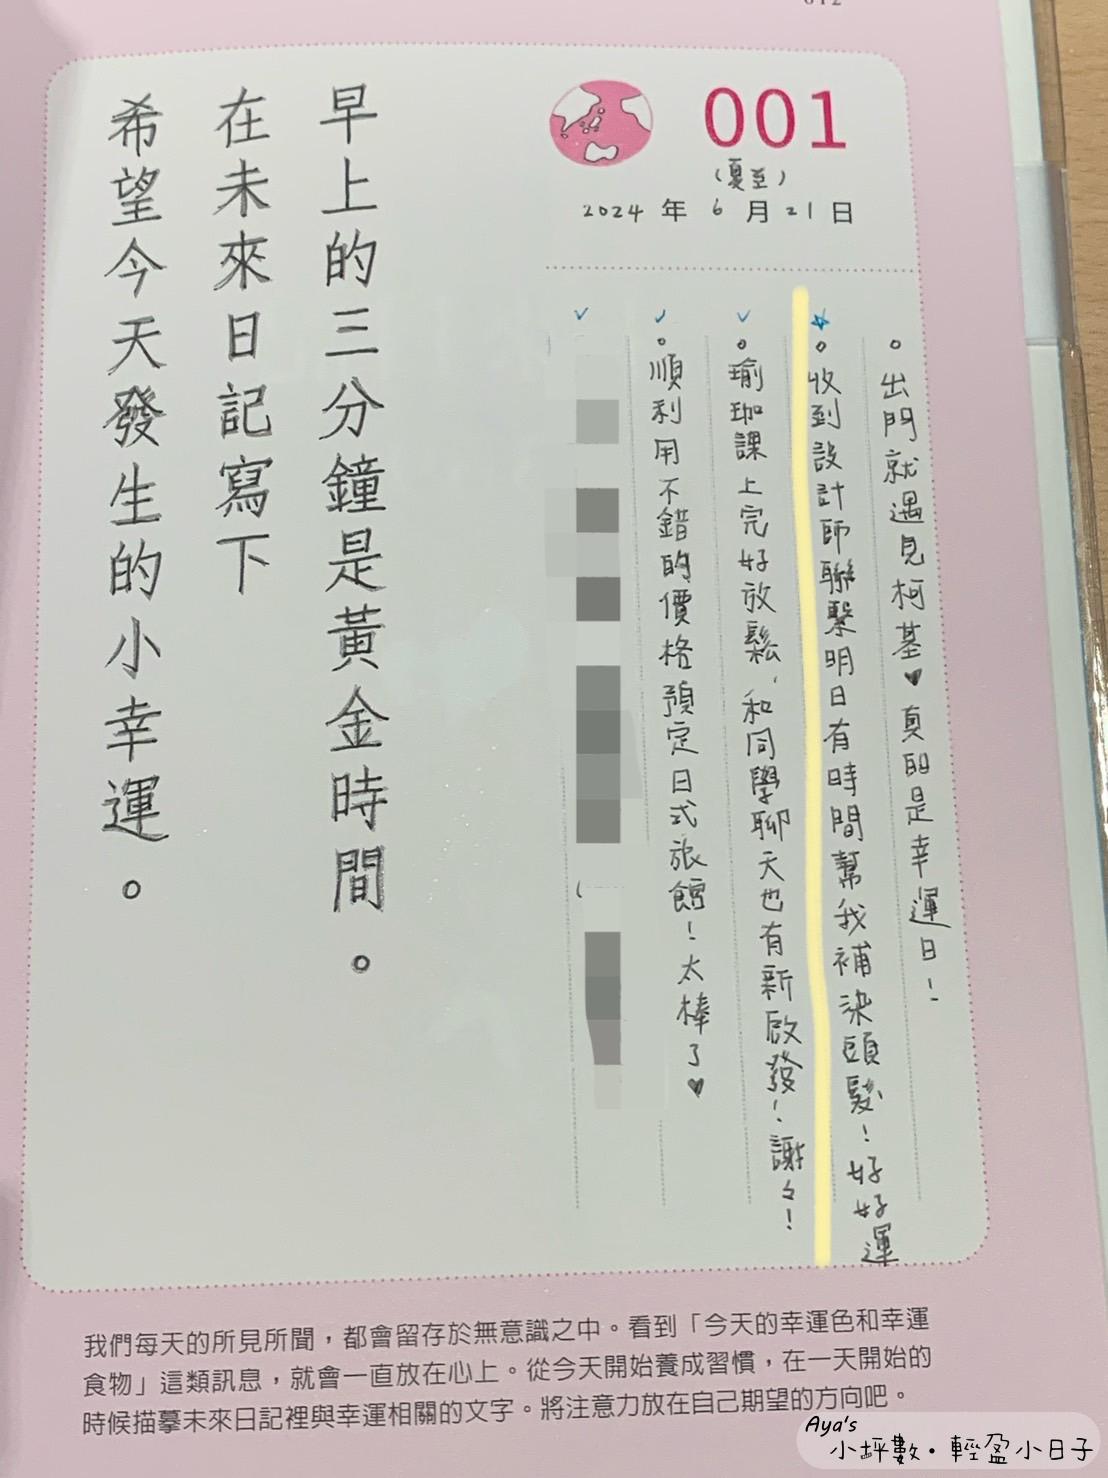 001
(夏至)
2024 年 6 月 21 日
。出門就遇見柯基♥真的是幸運日！
☆。收到設計師聯繫明日有時間幫我補染頭髮！好好運
✓。瑜珈課上完好放鬆，和同學聊天也有新啟發！謝々！
✓。順利用不錯的價格預定日式旅館！太棒了♥
✓
早上的三分鐘是黃金時間。
在未來日記寫下
希望今天發生的小幸運。
我們每天的所見所聞，都會留存於無意識之中。看到「今天的幸運色和幸運
食物」這類訊息，就會一直放在心上。從今天開始養成習慣，在一天開始的
時候描摹未來日記裡與幸運相關的文字。將注意力放在自己期望的方向吧。
Aya's
小坪數·輕盈小日子